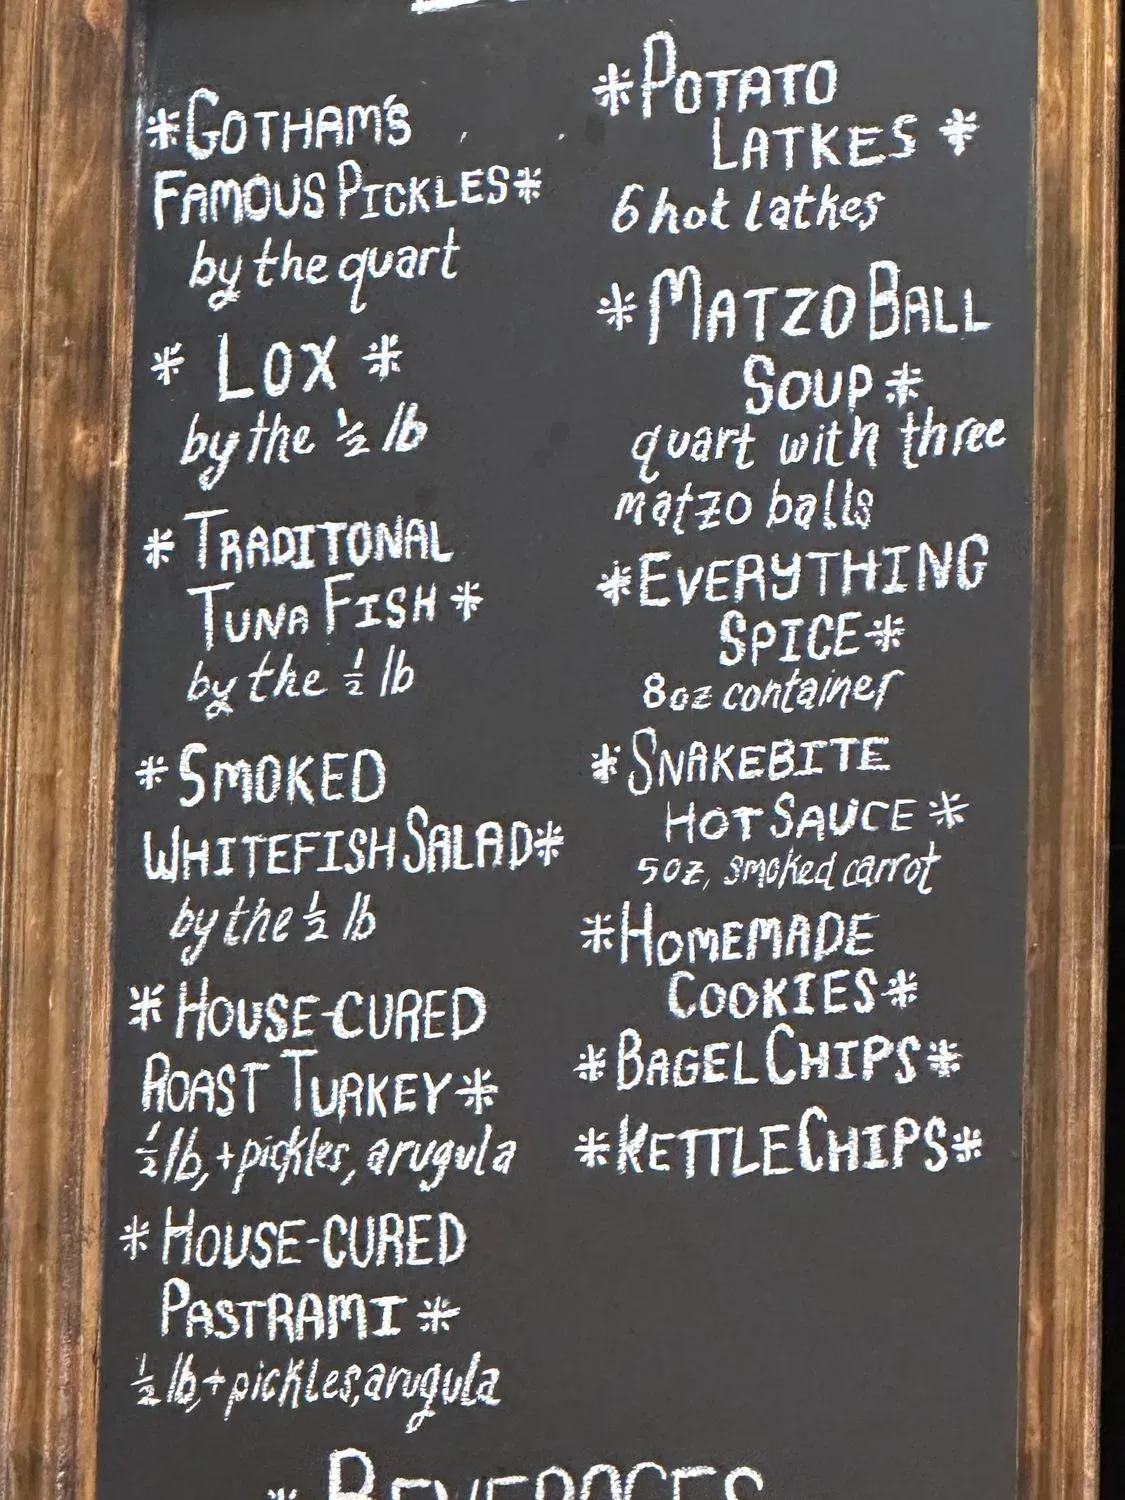 *GOTHAM'S
FAMOUS PICKLES*
by the quart
* LOX *
by the ½ lb
*TRADITONAL
TUNA FISH*
by the ½ lb
*SMOKED
WHITEFISH SALAD*
by the ½ lb
*HOUSE-CURED
ROAST TURKEY*
½ lb, + pickles, arugula
*HOUSE-CURED
PASTRAMI*
½ lb, + pickles, arugula
*POTATO
LATKES*
6 hot latkes
*MATZO BALL
SOUP*
quart with three
matzo balls
*EVERYTHING
SPICE*
8oz container
*SNAKEBITE
HOT SAUCE*
5oz, smoked carrot
*HOMEMADE
COOKIES*
*BAGEL CHIPS*
*KETTLE CHIPS*
* BEVERAGES